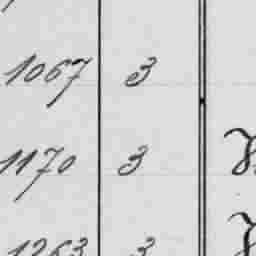 1067 3
1170 3
1263 3